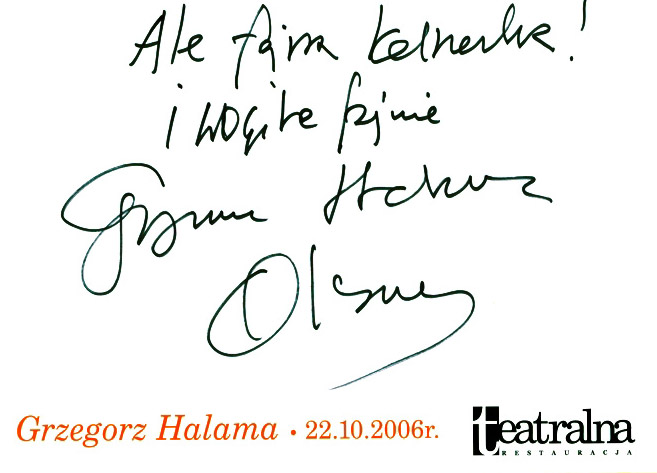 Ale fajna kelnerka!
i wogóle fajnie
Grzegorz Halama
Oklasky
Grzegorz Halama • 22.10.2006r.
teatralna
RESTAURACJA